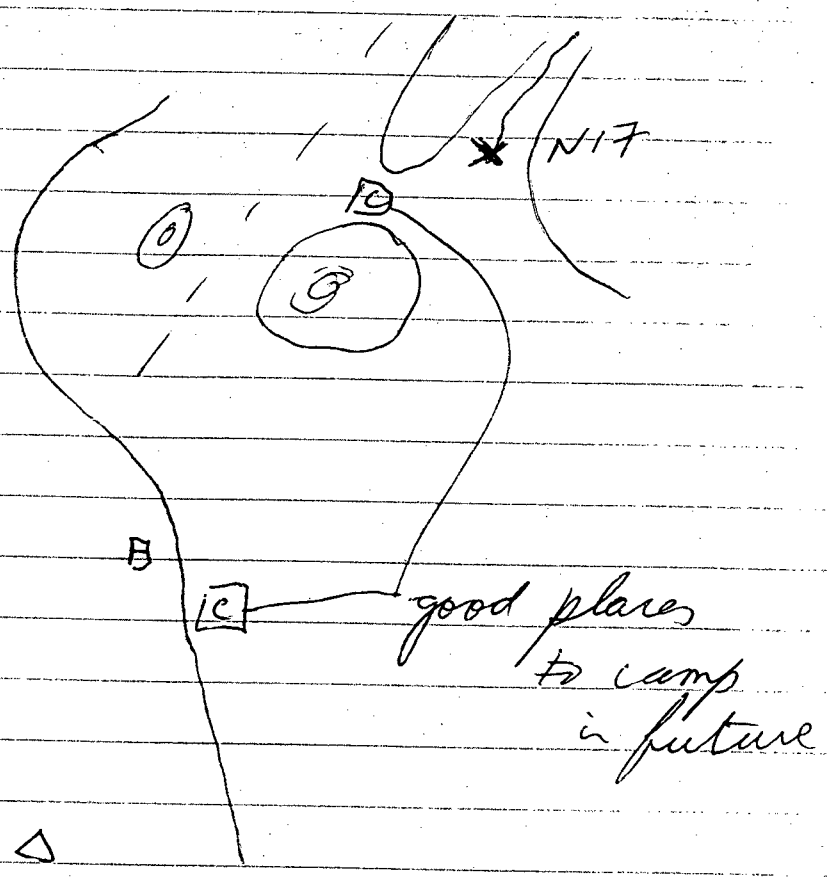 N17
C
B
C
good places
to camp
in future